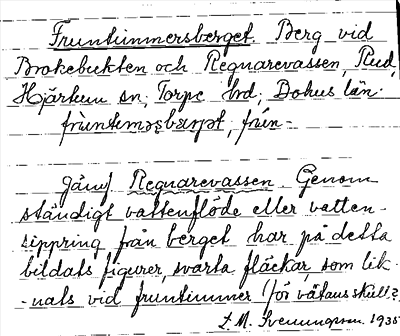 Fruntimmersberget. Berg vid
Brokebukten och Regnarevassen, Rud,
Hjärtum sn, Torpe hrd, Bohus län.
jämf Regnarevassen. Genom
ständigt vattenflöde eller vatten-
sippring från berget har på detta
bildats figurer, svarta fläckar, som lik-
nats vid fruntimmer (för vätans skull?)
1935